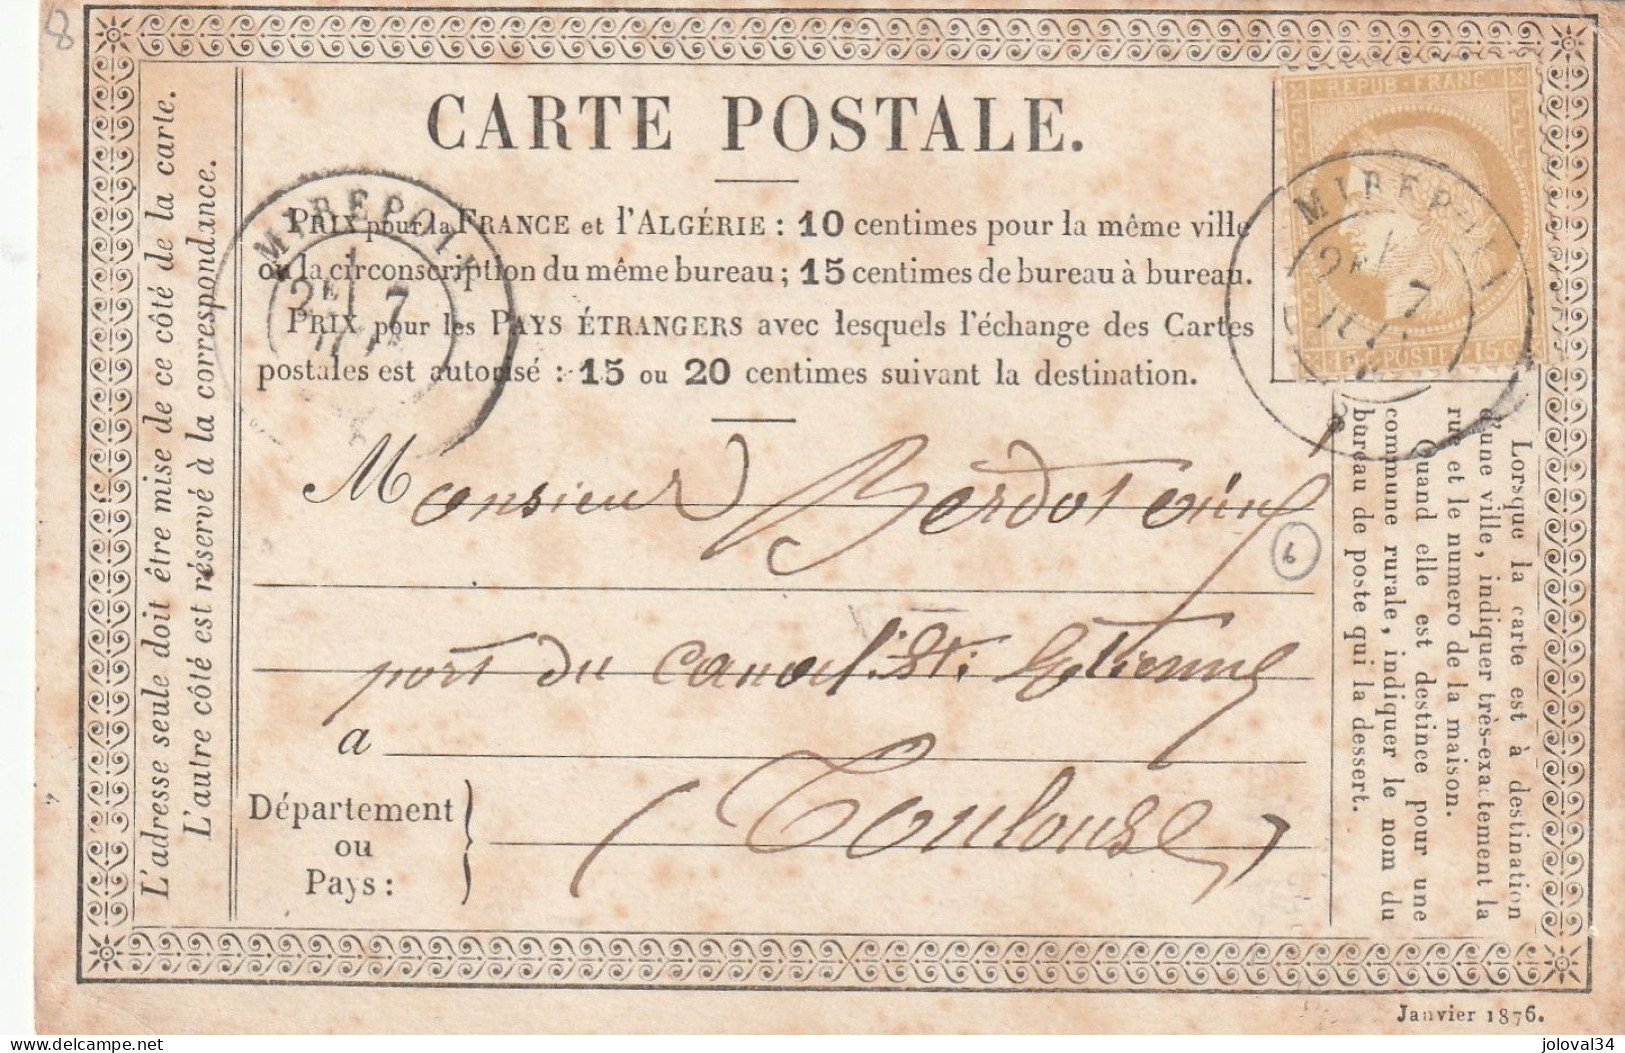 8
CARTE POSTALE.
PRIX pour la FRANCE et l'ALGÉRIE : 10 centimes pour la même ville
ou la circonscription du même bureau ; 15 centimes de bureau à bureau.
PRIX pour les PAYS ÉTRANGERS avec lesquels l'échange des Cartes
postales est autorisé : 15 ou 20 centimes suivant la destination.
L'adresse seule doit être mise de ce côté de la carte.
L'autre côté est réservé à la correspondance.
REPUB · FRANC
15 C POSTES 15 C
MIREPOIX
2E
7
MIREPOIX
2E
7
Monsieur Berdot
6
port du canal St. Etienne
a
Département
ou
Pays :
(Toulouse)
Lorsque la carte est à destination
d'une ville, indiquer très-exactement la
rue et le numero de la maison.
Quand elle est destinée pour une
commune rurale, indiquer le nom du
bureau de poste qui la dessert.
Janvier 1876.
joloval34